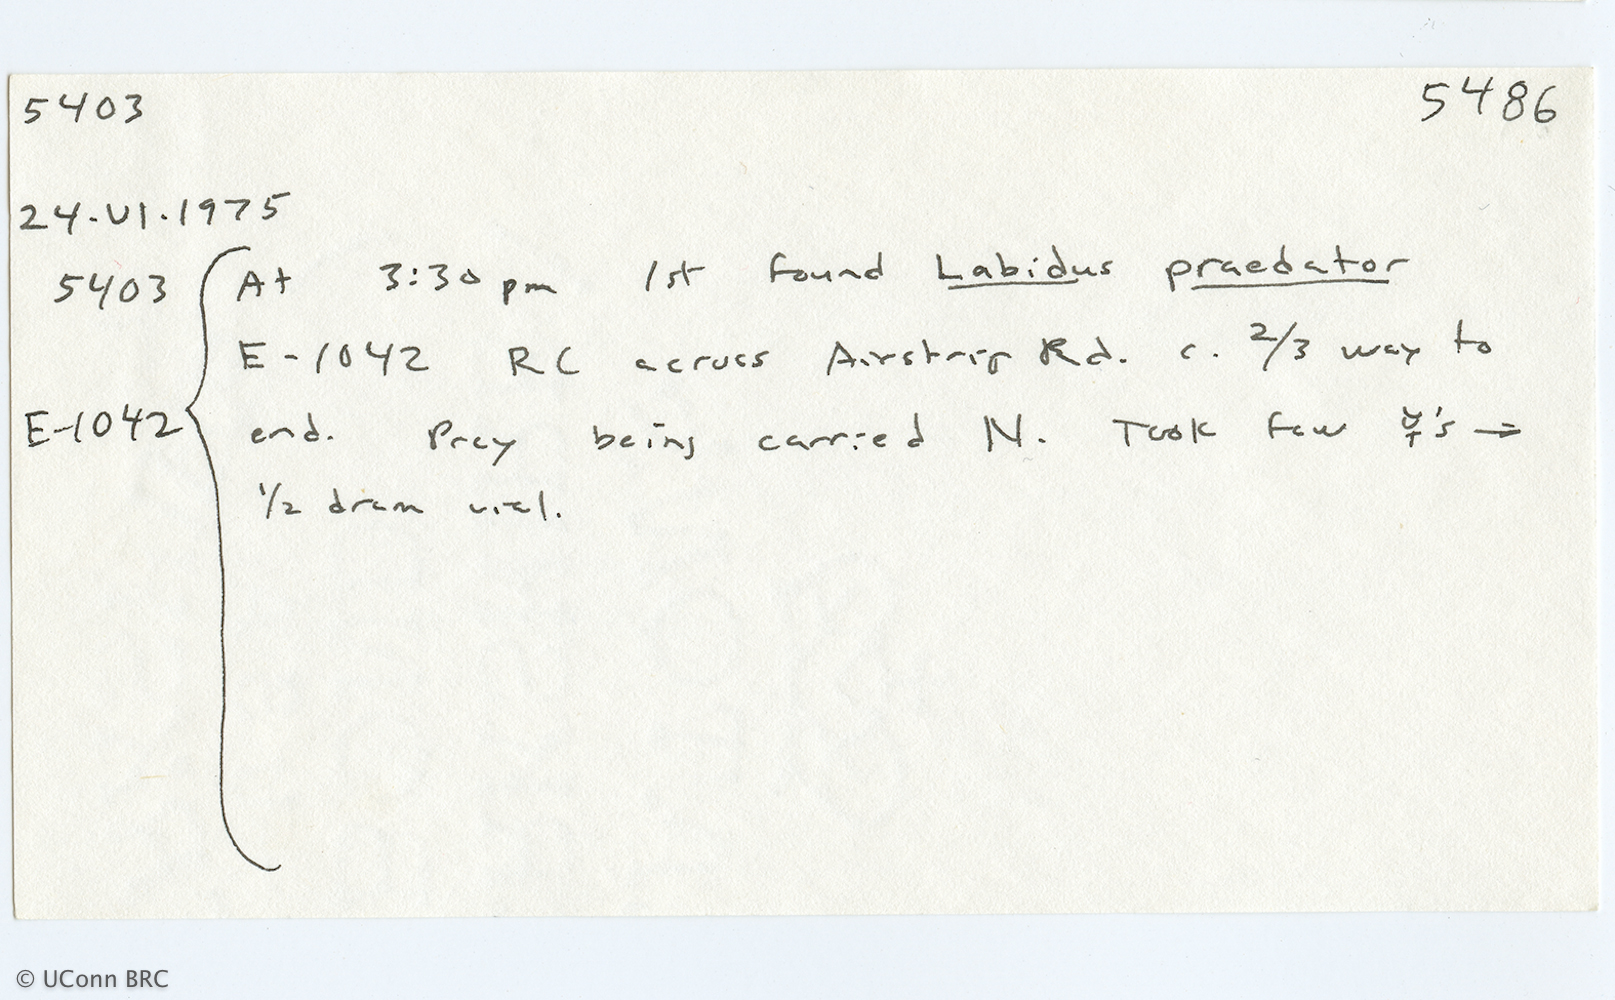 5403 5486
24.VI.1975
5403 At 3:30 pm 1st found Labidus praedator
E-1042 RC across Airstrip Rd. c. 2/3 way to
E-1042 end. Prey being carried N. Took few ☿'s →
1/2 dram vial.
© UConn BRC